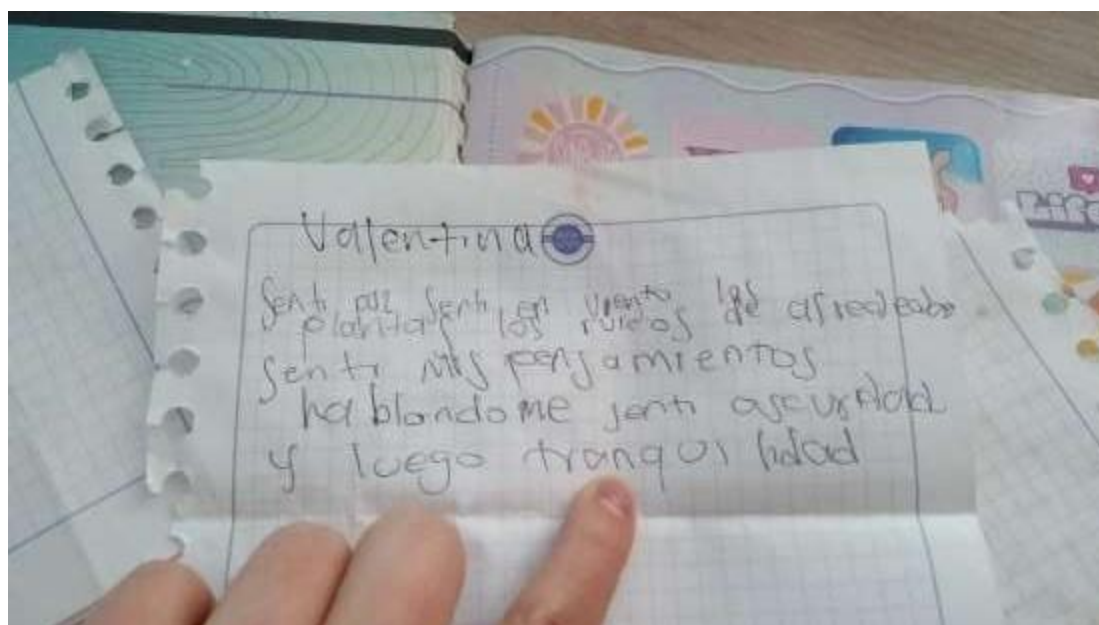 Valentina
Senti paz Senti en viento las
plantas los ruidos de alrededor
Senti mis pensamientos
hablandome senti oscuridad
y luego tranquilidad
Life